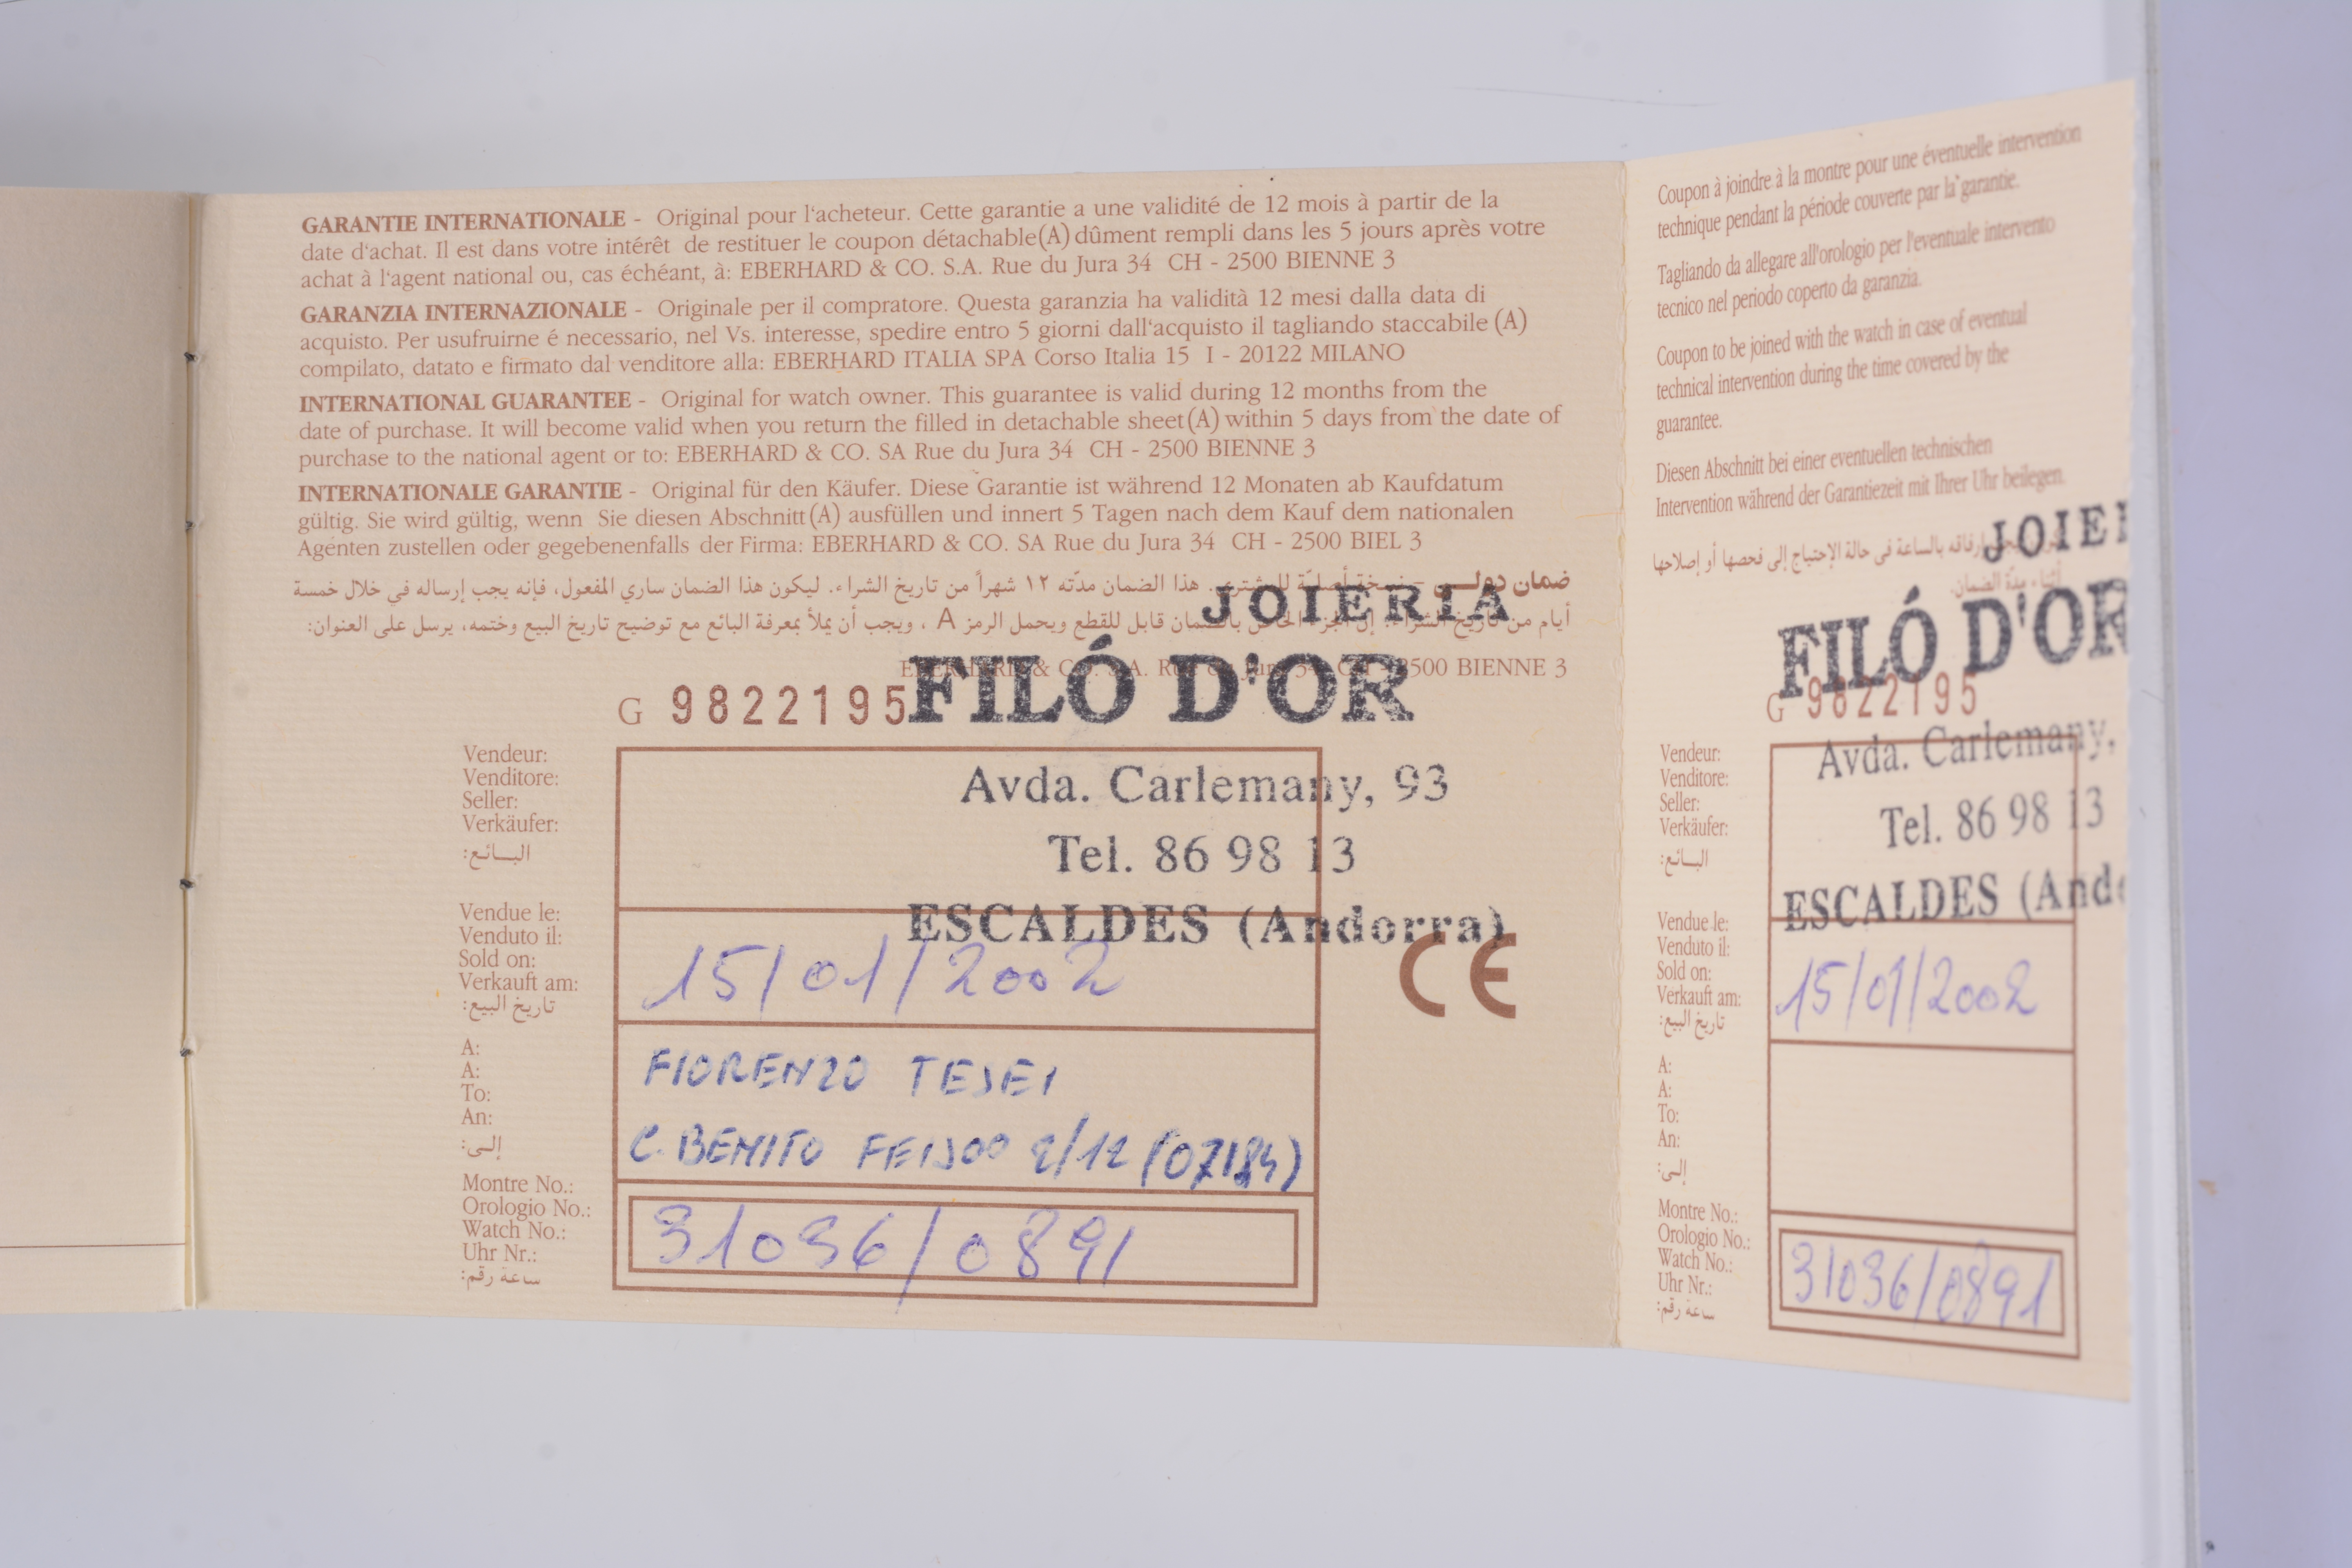 GARANTIE INTERNATIONALE - Original pour l'acheteur. Cette garantie a une validité de 12 mois à partir de la
date d'achat. Il est dans votre intérêt de restituer le coupon détachable(A) dûment rempli dans les 5 jours après votre
achat à l'agent national ou, cas échéant, à: EBERHARD & CO. S.A. Rue du Jura 34 CH - 2500 BIENNE 3
GARANZIA INTERNAZIONALE - Originale per il compratore. Questa garanzia ha validità 12 mesi dalla data di
acquisto. Per usufruirne é necessario, nel Vs. interesse, spedire entro 5 giorni dall'acquisto il tagliando staccabile (A)
compilato, datato e firmato dal venditore alla: EBERHARD ITALIA SPA Corso Italia 15 I - 20122 MILANO
INTERNATIONAL GUARANTEE - Original for watch owner. This guarantee is valid during 12 months from the
date of purchase. It will become valid when you return the filled in detachable sheet(A) within 5 days from the date of
purchase to the national agent or to: EBERHARD & CO. SA Rue du Jura 34 CH - 2500 BIENNE 3
INTERNATIONALE GARANTIE - Original für den Käufer. Diese Garantie ist während 12 Monaten ab Kaufdatum
gültig. Sie wird gültig, wenn Sie diesen Abschnitt(A) ausfüllen und innert 5 Tagen nach dem Kauf dem nationalen
Agenten zustellen oder gegebenenfalls der Firma: EBERHARD & CO. SA Rue du Jura 34 CH - 2500 BIEL 3
ضمان دولي - نسخة أصلية للمشتري. هذا الضمان مدّته ١٢ شهراً من تاريخ الشراء. ليكون هذا الضمان ساري المفعول، فإنه يجب إرساله في خلال خمسة
أيام من تاريخ الشراء. إن الجزء الخاص بالضمان قابل للقطع ويحمل الرمز A ، ويجب أن يملأ بمعرفة البائع مع توضيح تاريخ البيع وختمه، يرسل على العنوان:
EBERHARD & CO. S.A. Rue du Jura 34 CH - 2500 BIENNE 3
JOIERIA
FILÓ D'OR
Avda. Carlemany, 93
Tel. 86 98 13
ESCALDES (Andorra)
G 9822195
Vendeur:
Venditore:
Seller:
Verkäufer:
البائع:
Vendue le:
Venduto il:
Sold on:
Verkauft am:
تاريخ البيع:
15/01/2002
CE
A:
A:
To:
An:
إلى:
FIORENZO TESEI
C. BENITO FEIJOO 2/12 (07184)
Montre No.:
Orologio No.:
Watch No.:
Uhr Nr.:
ساعة رقم:
31036/0891
Coupon à joindre à la montre pour une éventuelle intervention
technique pendant la période couverte par la garantie.
Tagliando da allegare all'orologio per l'eventuale intervento
tecnico nel periodo coperto da garanzia.
Coupon to be joined with the watch in case of eventual
technical intervention during the time covered by the
guarantee.
Diesen Abschnitt bei einer eventuellen technischen
Intervention während der Garantiezeit mit Ihrer Uhr beilegen.
إرفاقه بالساعة في حالة الإحتياج إلى فحصها أو إصلاحها
أثناء مدّة الضمان.
JOIER
FILÓ D'OR
G 9822195
Avda. Carlemany,
Tel. 86 98 13
ESCALDES (Ando
Vendeur:
Venditore:
Seller:
Verkäufer:
البائع:
Vendue le:
Venduto il:
Sold on:
Verkauft am:
تاريخ البيع:
15/01/2002
A:
A:
To:
An:
إلى:
Montre No.:
Orologio No.:
Watch No.:
Uhr Nr.:
ساعة رقم:
31036/0891